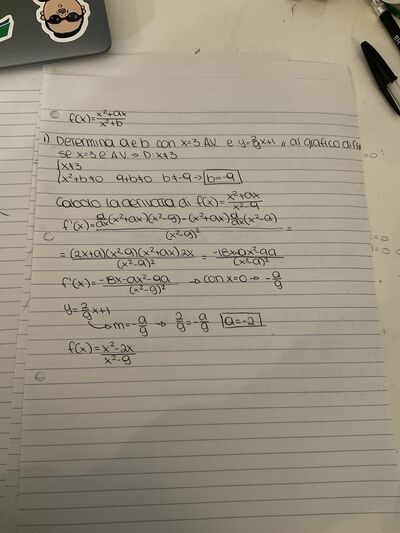 f(x)=\frac{x²+ax}{x²+b}
1) Determina a e b con x=3 A.V. e y=\frac{2}{9}x+1 // al grafico di f(x)
se x=3 è A.V. → D: x≠3
{x≠3
x²+b≠0 9+b≠0 b≠-9 → b=-9
Calcolo la derivata di f(x)=\frac{x²+ax}{x²-9}
f'(x)=\frac{\frac{d}{dx}(x²+ax)(x²-9)-(x²+ax)\frac{d}{dx}(x²-9)}{(x²-9)²} =
= \frac{(2x+a)(x²-9)(x²+ax)2x}{(x²-9)²} = \frac{-18x-ax²-9a}{(x²-9)²}
f'(x)=\frac{-18x-ax²-9a}{(x²-9)²} → con x=0 → -\frac{a}{9}
y=\frac{2}{9}x+1
↳ m=-\frac{a}{9} → \frac{2}{9}=-\frac{a}{9} a=-2
f(x)=\frac{x²-2x}{x²-9}